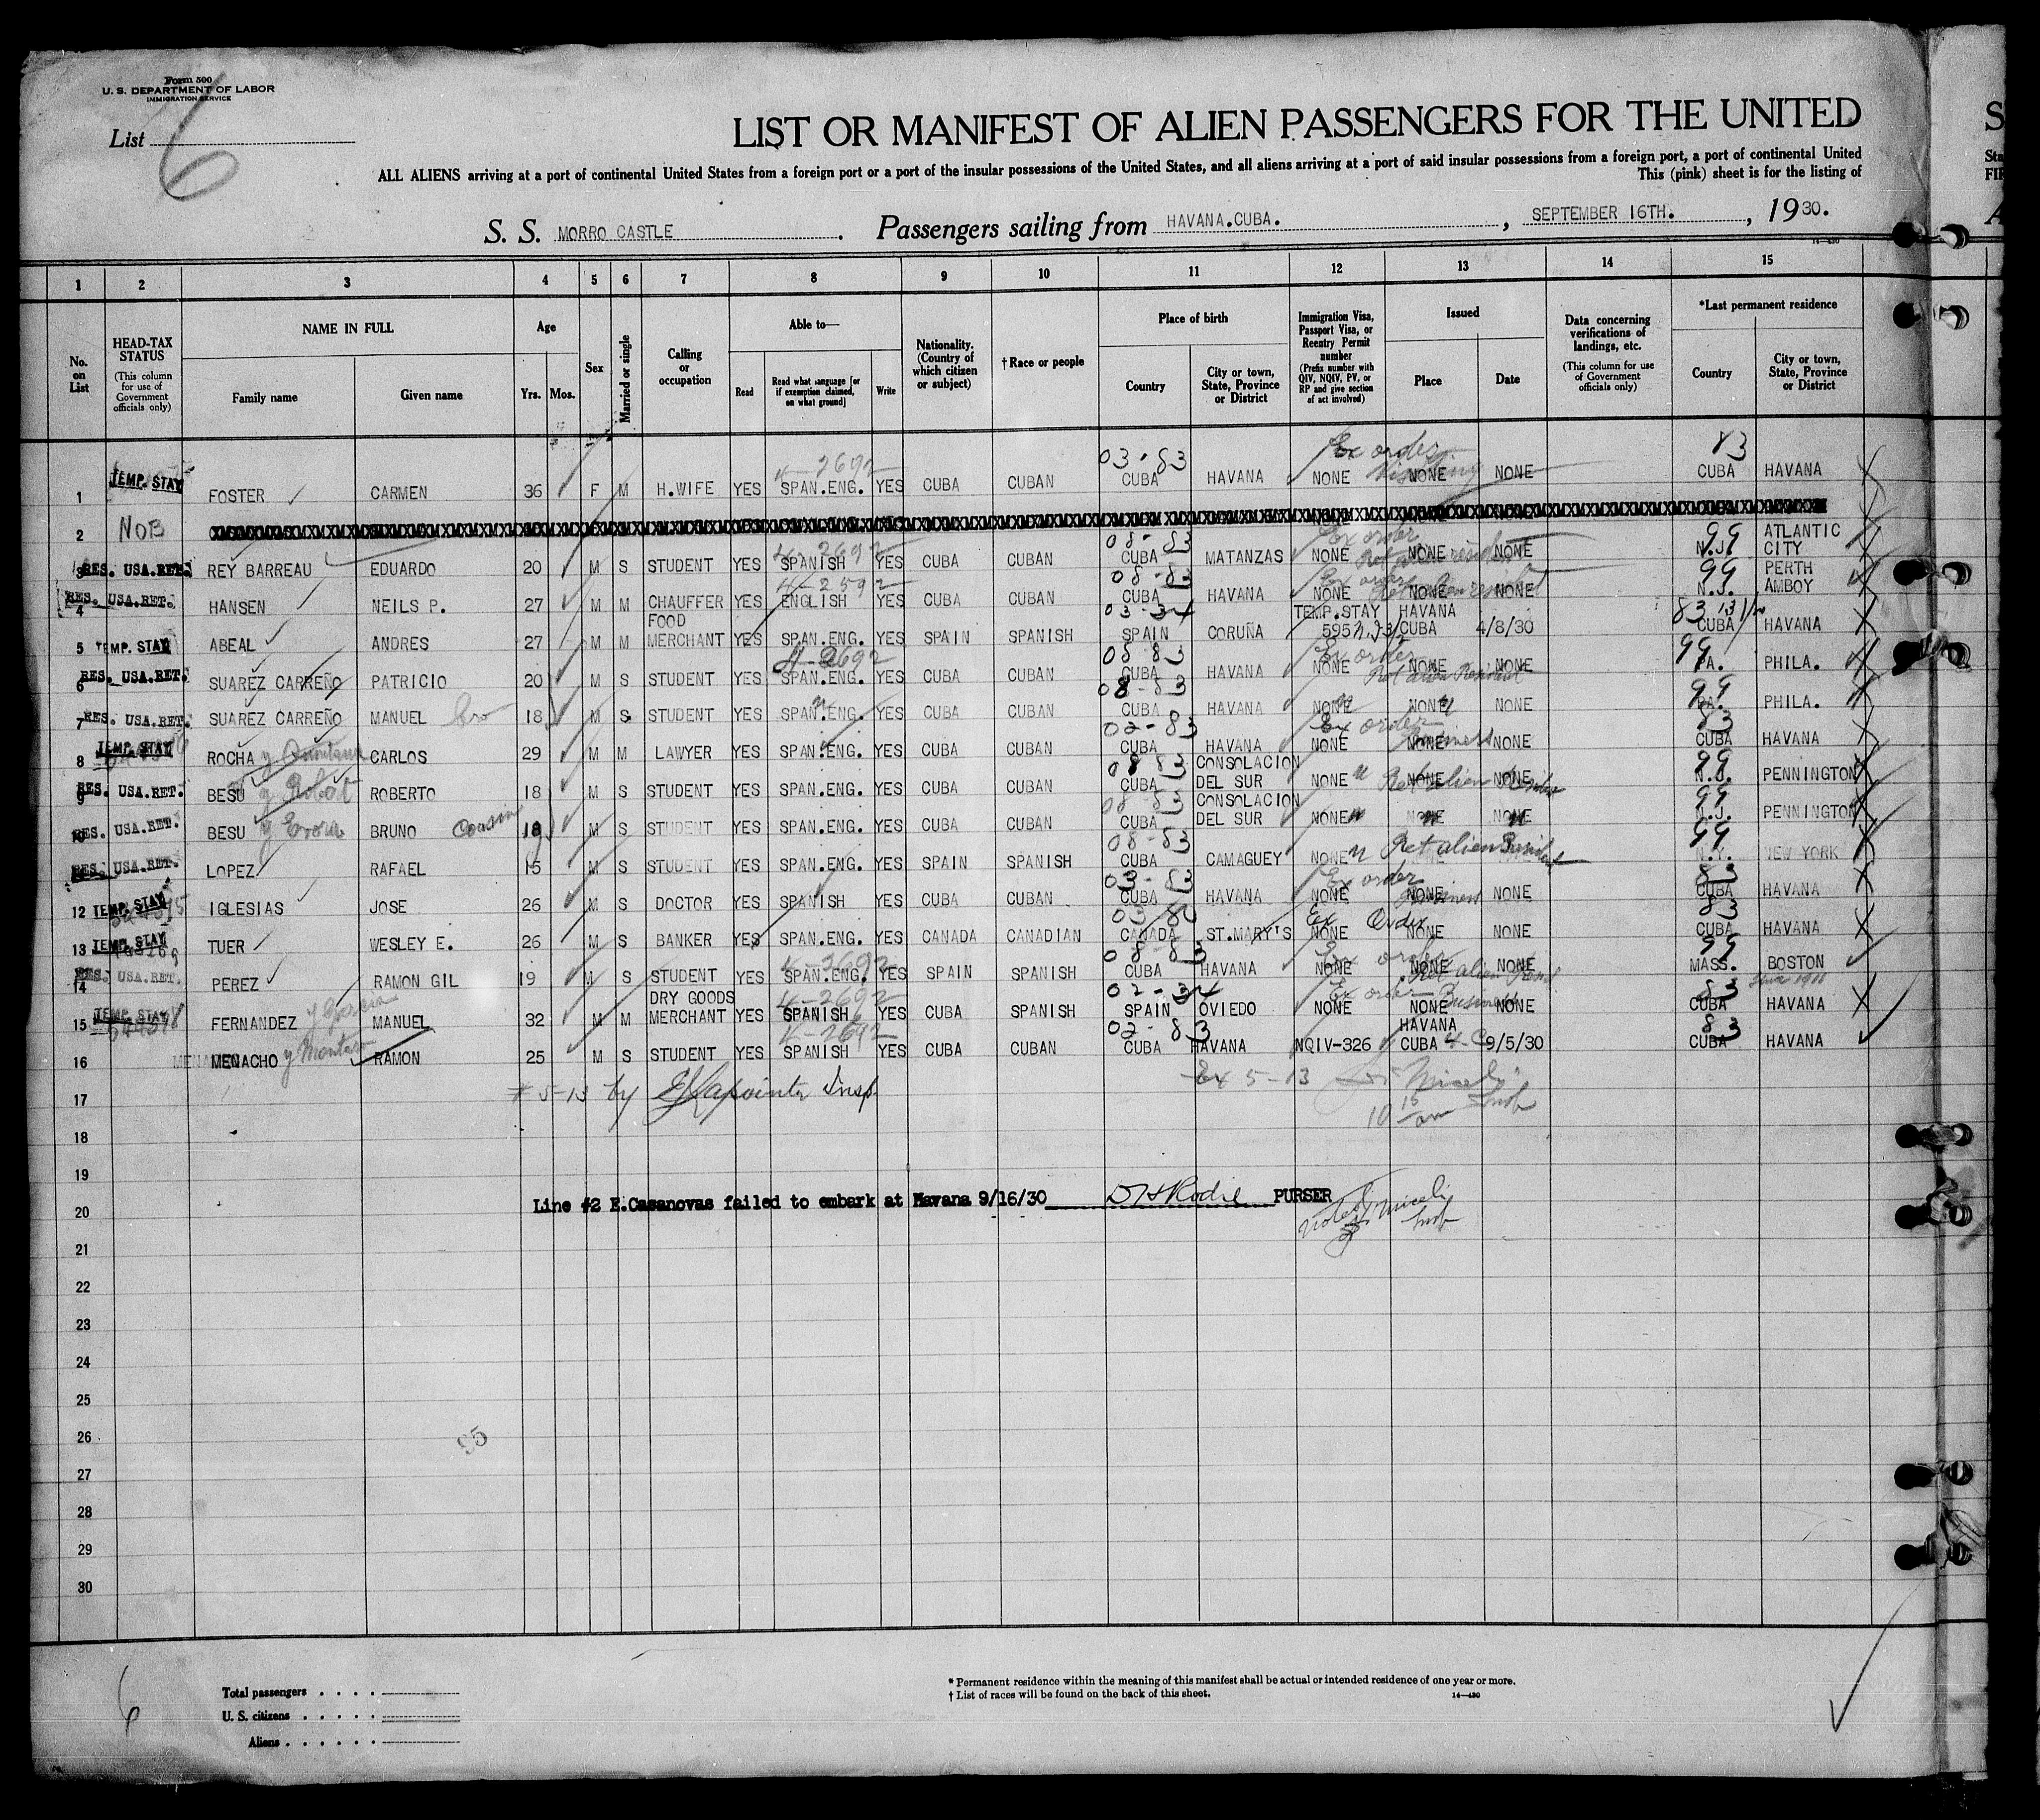 Form 500
U. S. DEPARTMENT OF LABOR
IMMIGRATION SERVICE
List 6
LIST OR MANIFEST OF ALIEN PASSENGERS FOR THE UNITED
ALL ALIENS arriving at a port of continental United States from a foreign port or a port of the insular possessions of the United States, and all aliens arriving at a port of said insular possessions from a foreign port, a port of continental United
This (pink) sheet is for the listing of
S. S. MORRO CASTLE Passengers sailing from HAVANA.CUBA. , SEPTEMBER 16TH. , 1930.
14—430
1 2 3 4 5 6 7 8 9 10 11 12 13 14 15
No. on List
HEAD-TAX STATUS (This column for use of Government officials only)
NAME IN FULL
Family name Given name
Age Yrs. Mos.
Sex
Married or single
Calling or occupation
Able to—
Read Read what language [or if exemption claimed, on what ground] Write
Nationality. (Country of which citizen or subject)
†Race or people
Place of birth
Country City or town, State, Province or District
Immigration Visa, Passport Visa, or Reentry Permit number (Prefix number with QIV, NQIV, PV, or RP and give section of act involved)
Issued
Place Date
Data concerning verifications of landings, etc. (This column for use of Government officials only)
*Last permanent residence
Country City or town, State, Province or District
03-83 Ex order 83
1 TEMP. STAY FOSTER CARMEN 36 F M H.WIFE YES SPAN.ENG. YES CUBA CUBAN CUBA HAVANA NONE NONE NONE CUBA HAVANA
2 NOB
08-83 Ex order 99
3 RES. USA.RET. REY BARREAU EDUARDO 20 M S STUDENT YES SPANISH YES CUBA CUBAN CUBA MATANZAS NONE NONE NONE N.J. ATLANTIC CITY
08-83 Ex order 99
4 RES. USA.RET. HANSEN NEILS P. 27 M M CHAUFFER YES ENGLISH YES CUBA CUBAN CUBA HAVANA NONE NONE NONE N.J. PERTH AMBOY
03-34
5 TEMP. STAY ABEAL ANDRES 27 M M FOOD MERCHANT YES SPAN.ENG. YES SPAIN SPANISH SPAIN CORUÑA TEMP.STAY 5957 HAVANA CUBA 4/8/30 CUBA HAVANA
4-2692 08-83 Ex order 99
6 RES. USA.RET. SUAREZ CARREÑO PATRICIO 20 M S STUDENT YES SPAN.ENG. YES CUBA CUBAN CUBA HAVANA NONE NONE NONE PA. PHILA.
08-83 99
7 RES. USA.RET. SUAREZ CARREÑO MANUEL bro 18 M S STUDENT YES SPAN.ENG. YES CUBA CUBAN CUBA HAVANA NONE NONE NONE PA. PHILA.
02-83 Ex order 83
8 TEMP. STAY ROCHA y Quintana CARLOS 29 M M LAWYER YES SPAN.ENG. YES CUBA CUBAN CUBA HAVANA NONE NONE NONE CUBA HAVANA
08-83 99
9 RES. USA.RET. BESU ROBERTO 18 M S STUDENT YES SPAN.ENG. YES CUBA CUBAN CUBA CONSOLACION DEL SUR NONE NONE NONE N.J. PENNINGTON
08-83 99
10 RES. USA.RET. BESU BRUNO cousin 18 M S STUDENT YES SPAN.ENG. YES CUBA CUBAN CUBA CONSOLACION DEL SUR NONE NONE NONE N.J. PENNINGTON
08-83 Ret alien 99
RES. USA.RET. LOPEZ RAFAEL 15 M S STUDENT YES SPAN.ENG. YES SPAIN SPANISH CUBA CAMAGUEY NONE N.Y. NEW YORK
03-83 Ex order 83
12 TEMP. STAY IGLESIAS JOSE 26 M S DOCTOR YES SPANISH YES CUBA CUBAN CUBA HAVANA NONE NONE NONE CUBA HAVANA
Ex Order 83
13 TEMP. STAY TUER WESLEY E. 26 M S BANKER YES SPAN.ENG. YES CANADA CANADIAN CANADA ST.MARY'S NONE NONE NONE CUBA HAVANA
4-2692 08-83 Ex order 99
14 RES. USA.RET. PEREZ RAMON GIL 19 M S STUDENT YES SPAN.ENG. YES SPAIN SPANISH CUBA HAVANA NONE NONE NONE MASS. BOSTON
4-2692 02-34 Ex order Business 83
15 TEMP. STAY FERNANDEZ MANUEL 32 M M DRY GOODS MERCHANT YES SPANISH YES CUBA SPANISH SPAIN OVIEDO NONE NONE NONE CUBA HAVANA
4-2692 02-83 83
16 MENACHO RAMON 25 M S STUDENT YES SPANISH YES CUBA CUBAN CUBA HAVANA NQIV-326 HAVANA CUBA 9/5/30 CUBA HAVANA
17 # 5-13 by Insp. Ex 5-13
18
19
20 Line #2 E.Casanovas failed to embark at Havana 9/16/30 PURSER
21
22
23
24
25
26
27
28
29
30
95
6
Total passengers
U. S. citizens
Aliens
* Permanent residence within the meaning of this manifest shall be actual or intended residence of one year or more.
† List of races will be found on the back of this sheet. 14—430